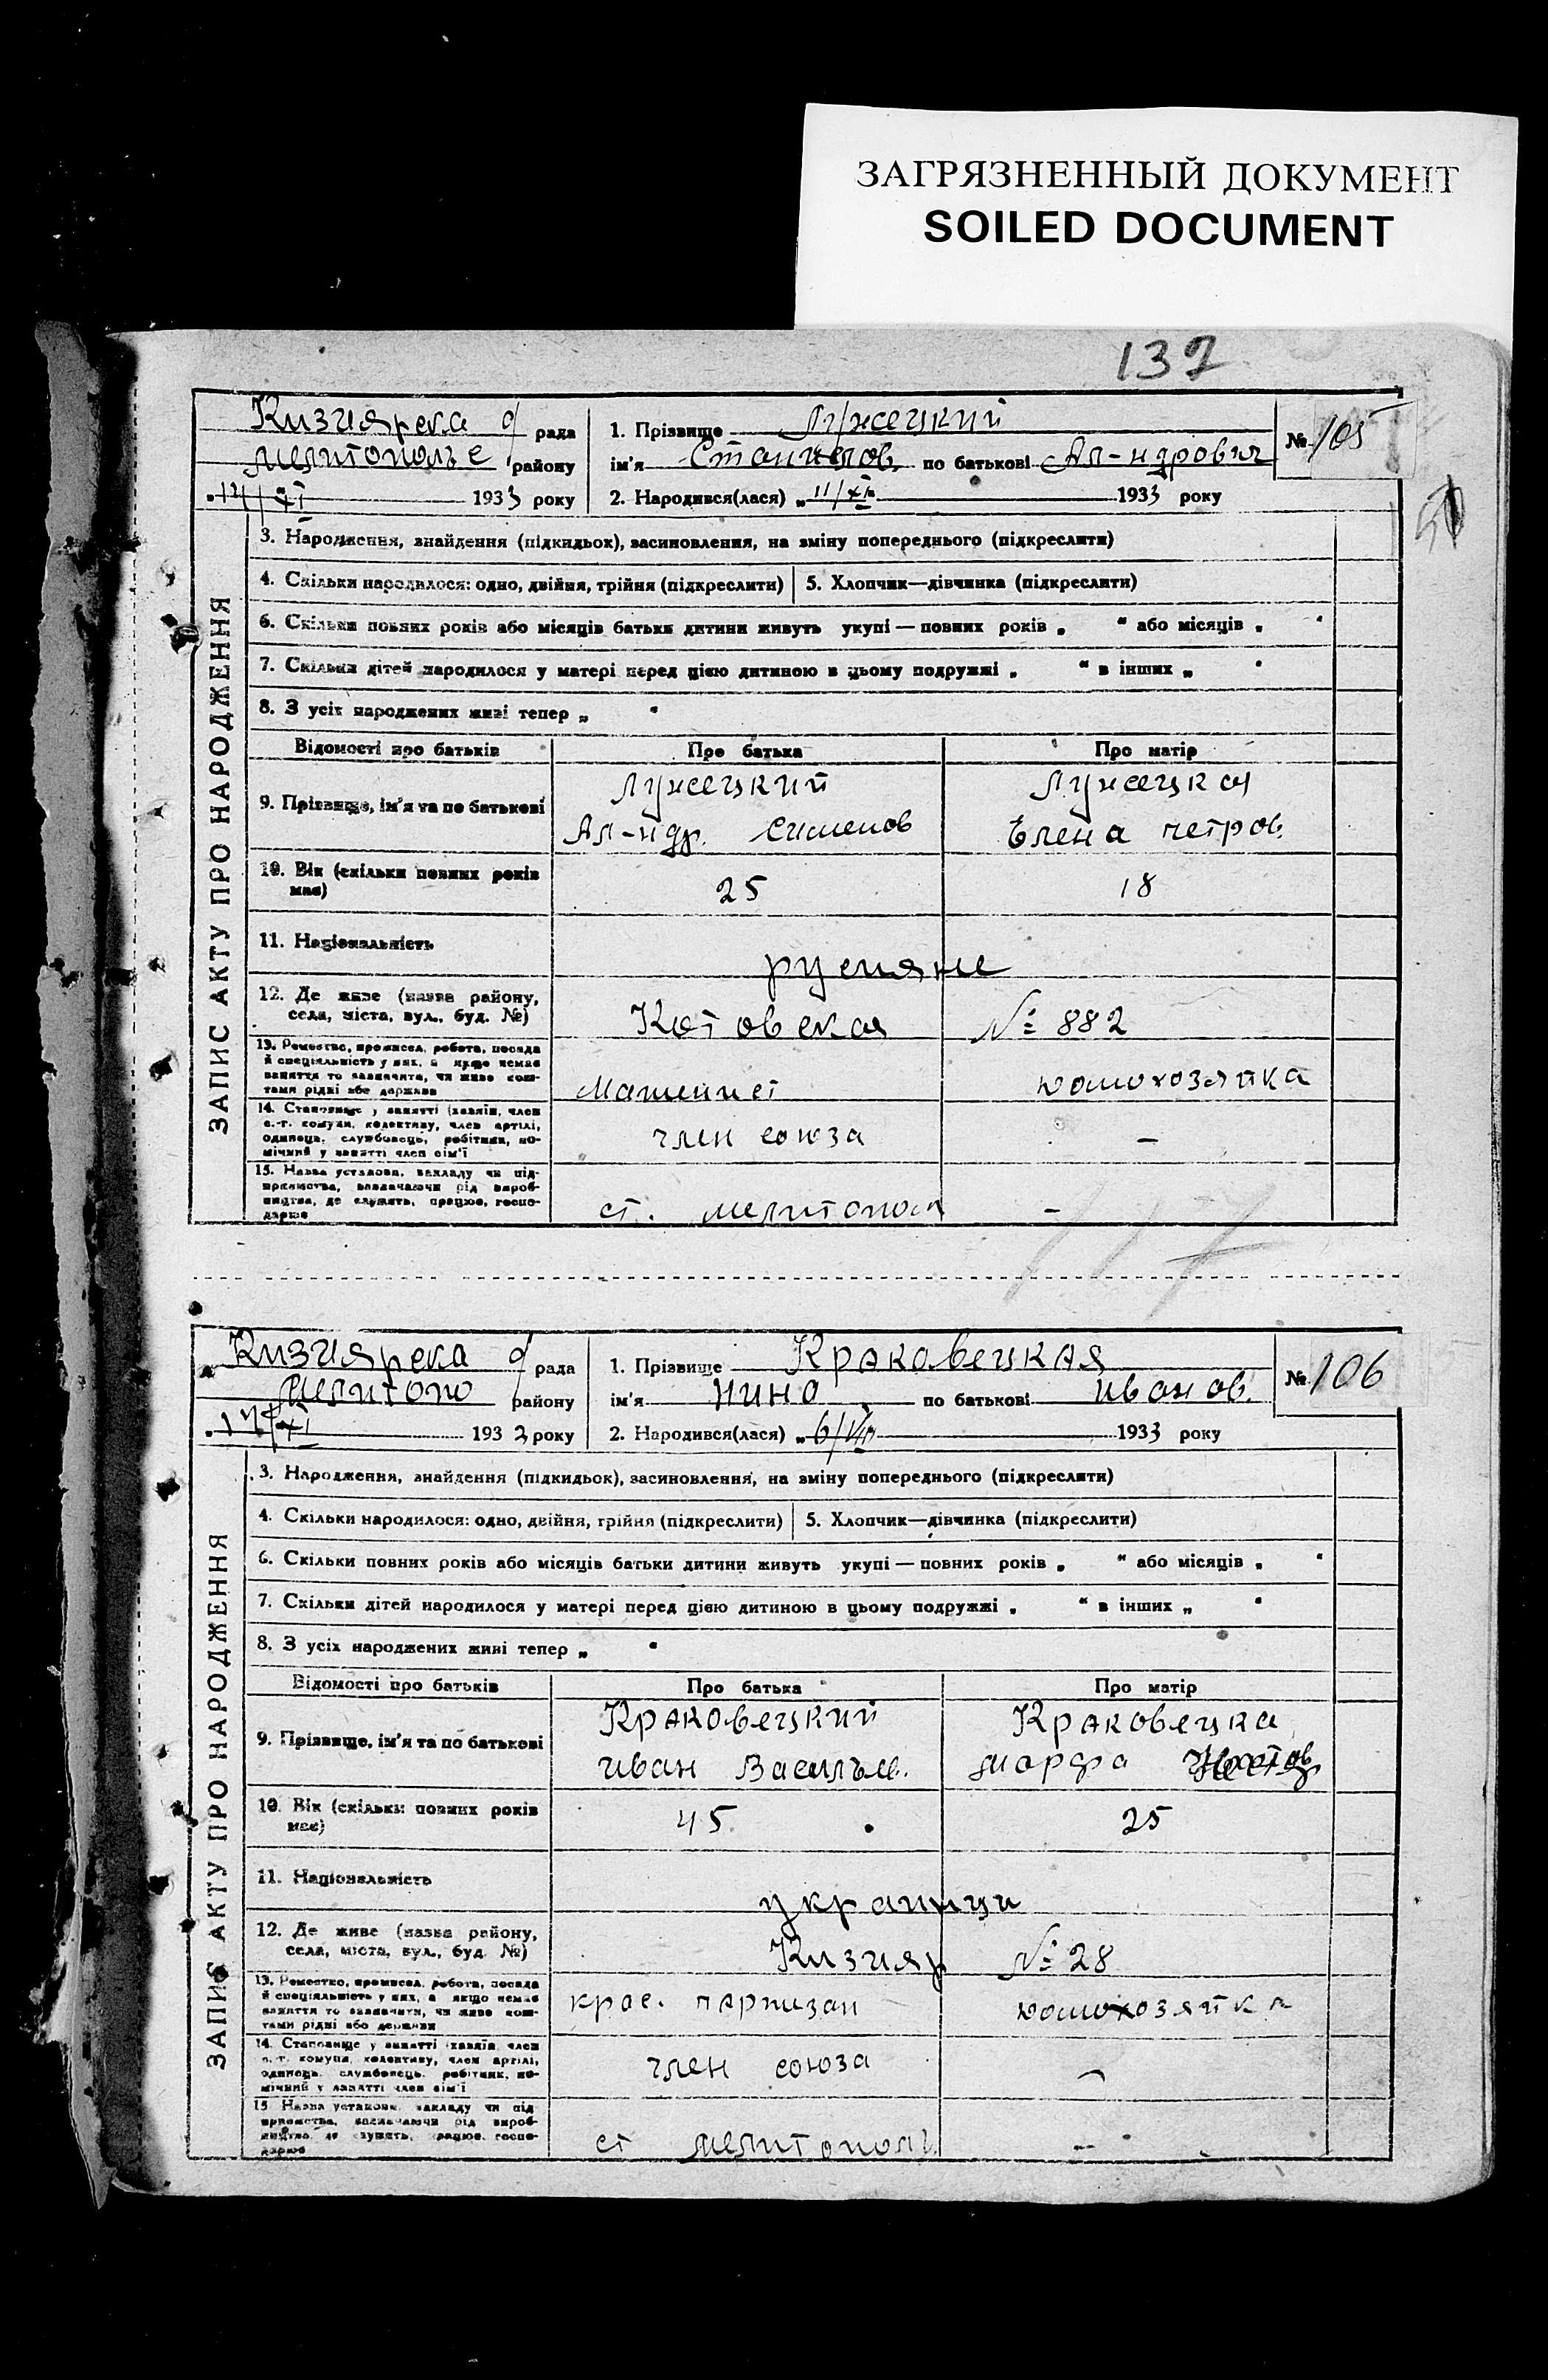 ЗАГРЯЗНЕННЫЙ ДОКУМЕНТ
SOILED DOCUMENT
137
Кизиярска рада
Мелитопольс району
"14/XI 1933 року
1. Прізвище Лужецкий
ім'я Станислов по батькові Ал-ндрович
2. Народився(лася) „11/XI 1933 року
№ 105
ЗАПИС АКТУ ПРО НАРОДЖЕННЯ
3. Народження, знайдення (підкидьок), засиновлення, на зміну попереднього (підкреслити)
4. Скільки народилося: одно, двійня, трійня (підкреслити) 5. Хлопчик—дівчинка (підкреслити)
6. Скільки повних років або місяців батьки дитини живуть укупі — повних років „ “ або місяців „ “
7. Скільки дітей народилося у матері перед цією дитиною в цьому подружжі „ “ в інших „ “
8. З усіх народжених живі тепер „ “
Відомості про батьків Про батька Про матір
9. Прізвище, ім'я та по батькові
Лужецкий Лужецкая
Ал-ндр. Семенов Елена Петров.
10. Вік (скільки повних років
має)
25 18
11. Національність
русияне
12. Де живе (назва району,
села, міста, вул., буд. №)
Котовская № 882
13. Ремество, промисел, робота, посада
й спеціяльність у них, а якщо немає
заняття то зазначити, чи живе кош-
тами рідні або держави
Машинист домохозяйка
14. Становище у занятті (хазяїн, член
с.-г. комуни, колективу, член артілі,
одинець, службовець, робітник, по-
мічний у занятті член сім'ї
член союза —
15. Назва установи, закладу чи під-
приємства, зазначаючи рід вироб-
ництва, де служить, працює, госпо-
дарює
ст. Мелитопол —
Кизиярска рада
Мелитопо району
1932 року
1. Прізвище Краковецкая
ім'я Нина по батькові Иванов.
2. Народився(лася) „6/VIII 1933 року
№ 106
ЗАПИС АКТУ ПРО НАРОДЖЕННЯ
3. Народження, знайдення (підкидьок), засиновлення, на зміну попереднього (підкреслити)
4. Скільки народилося: одно, двійня, трійня (підкреслити) 5. Хлопчик—дівчинка (підкреслити)
6. Скільки повних років або місяців батьки дитини живуть укупі — повних років „ “ або місяців „ “
7. Скільки дітей народилося у матері перед цією дитиною в цьому подружжі „ “ в інших „ “
8. З усіх народжених живі тепер „ “
Відомості про батьків Про батька Про матір
9. Прізвище, ім'я та по батькові
Краковецкий Краковецка
Иван Васильев. Марфа
10. Вік (скільки повних років
має)
45 25
11. Національність
украинци
12. Де живе (назва району,
села, міста, вул., буд. №)
Кизияр № 28
13. Ремество, промисел, робота, посада
й спеціяльність у них, а якщо немає
заняття то зазначити, чи живе кош-
тами рідні або держави
крас. партизан домохозяйка
14. Становище у занятті (хазяїн, член
с.-г. комуни, колективу, член артілі,
одинець, службовець, робітник, по-
мічний у занятті член сім'ї
член союза —
15. Назва установи, закладу чи під-
приємства, зазначаючи рід вироб-
ництва, де служить, працює, госпо-
дарює
ст Мелитополь —